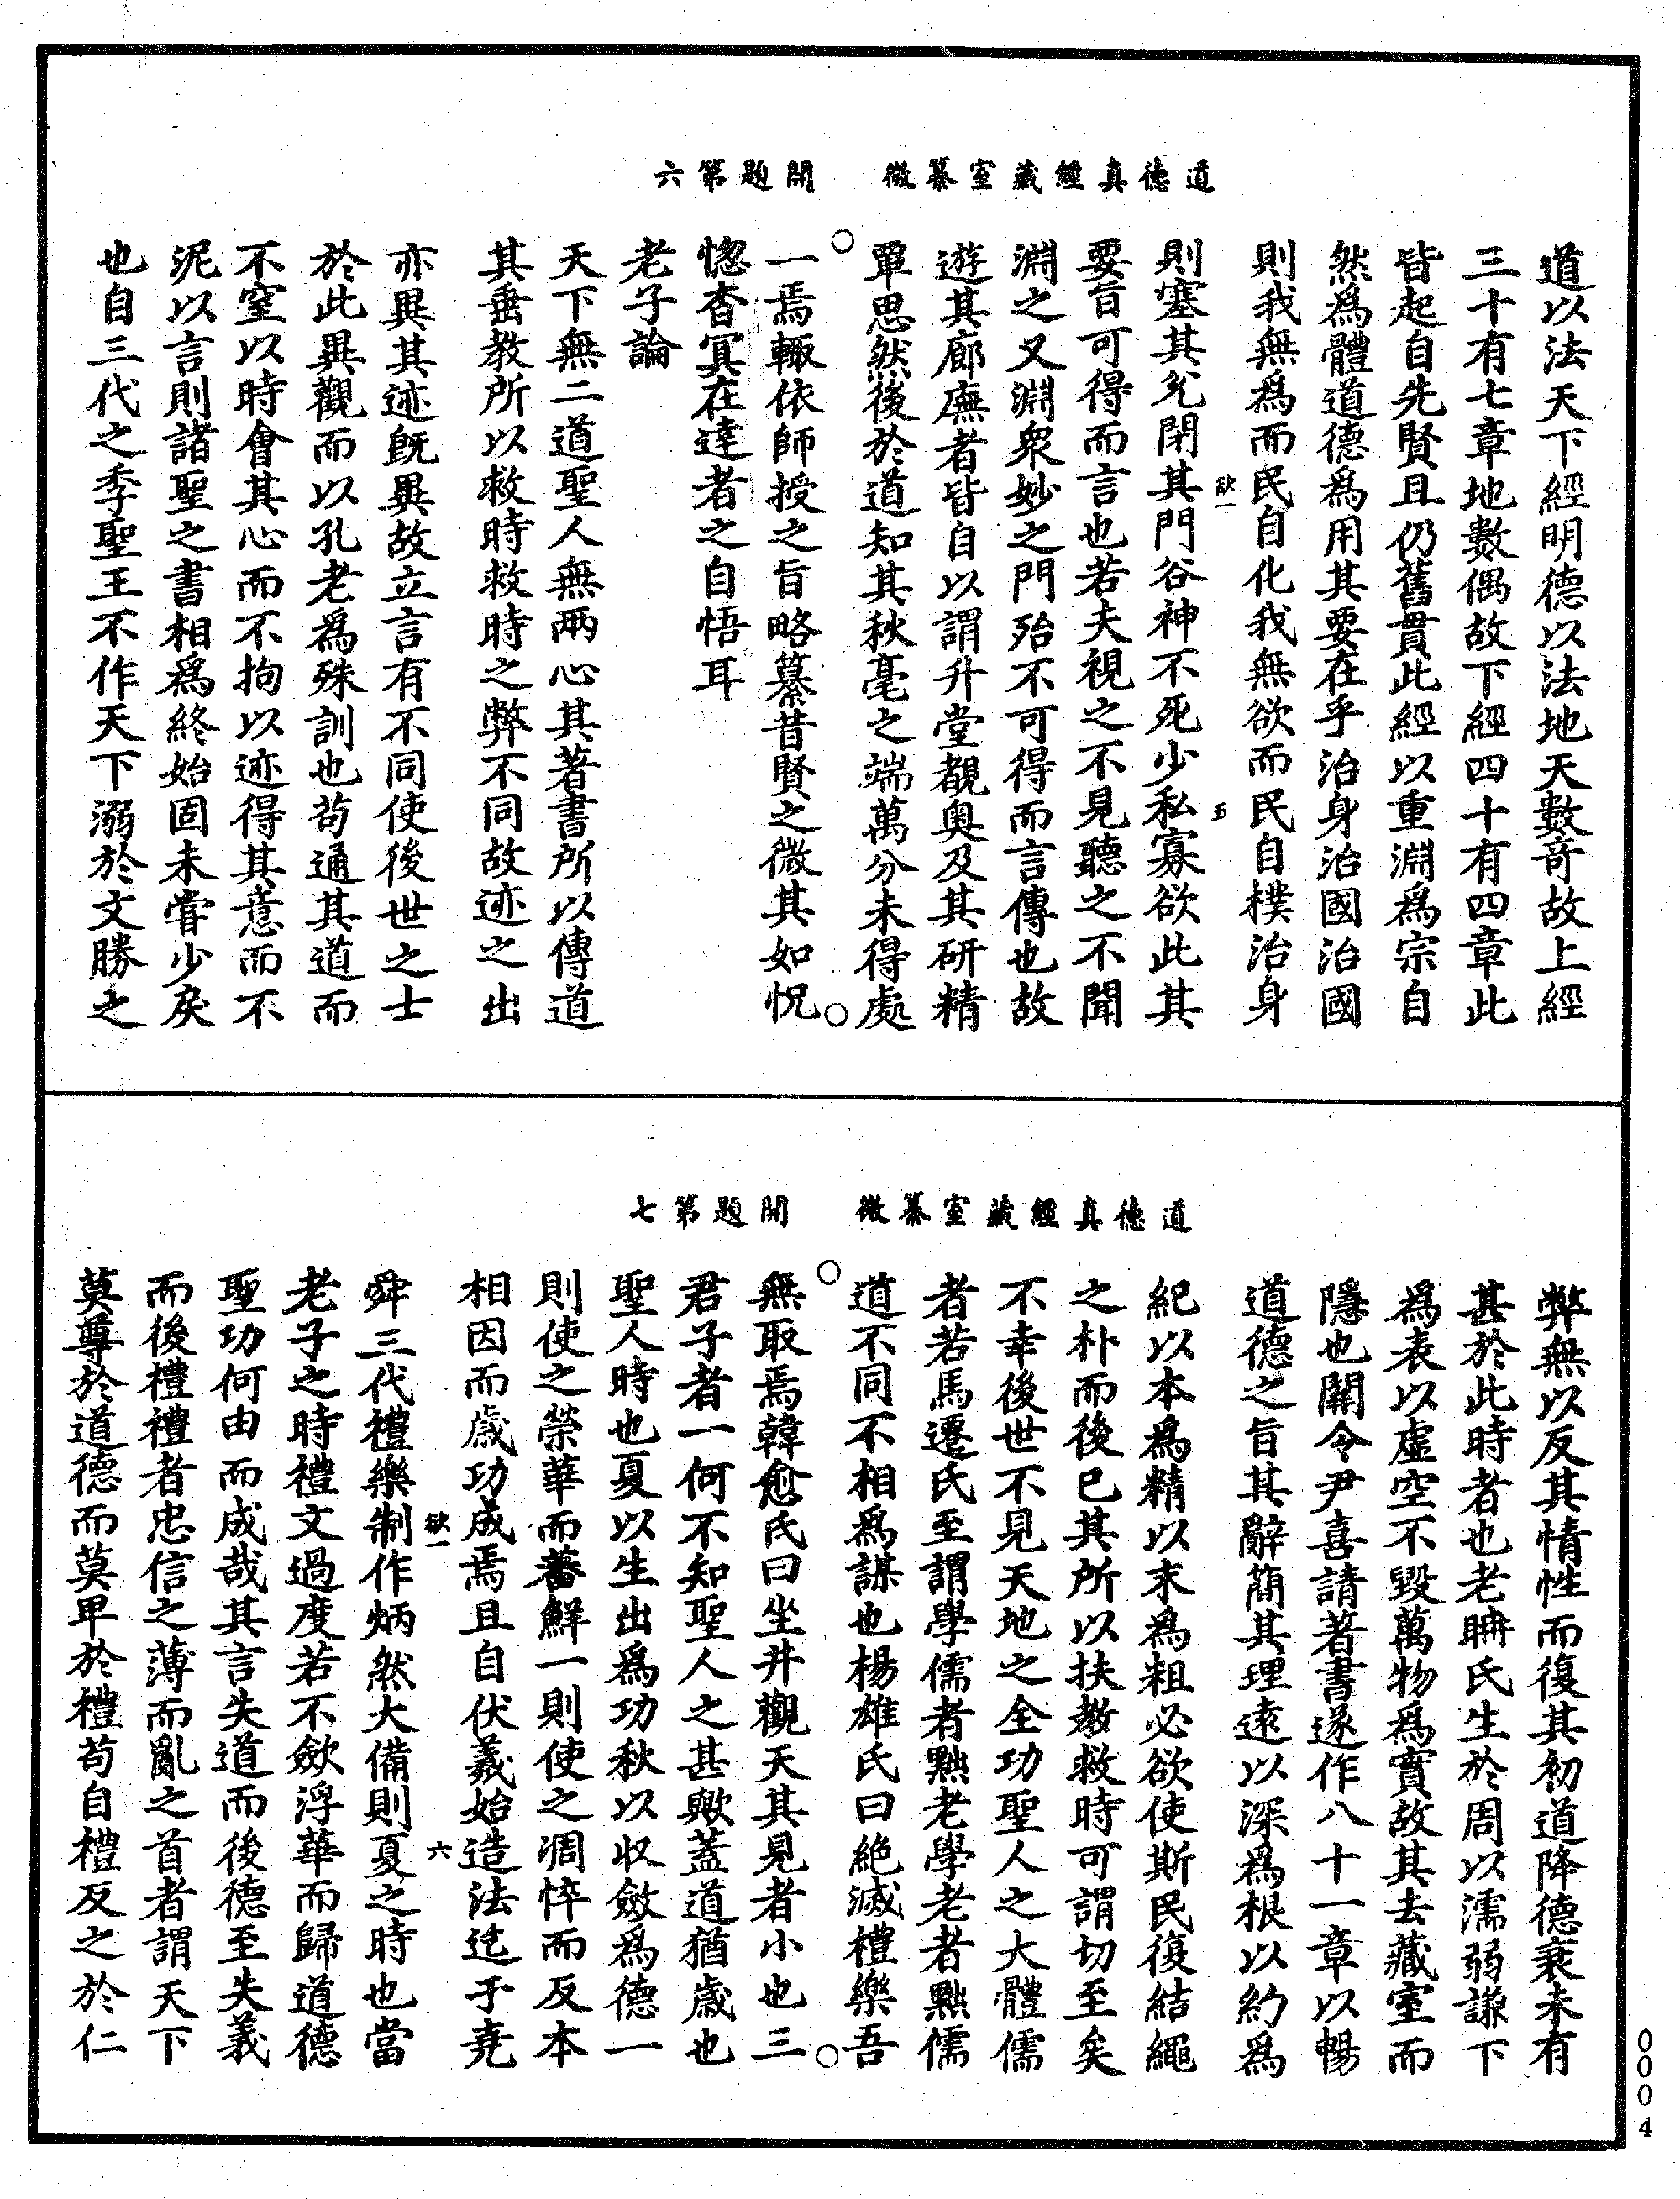 道德真經藏室纂微　開題第六
道以法天下經明德以法地天數奇故上經
三十有七章地數偶故下經四十有四章此
皆起自先賢且仍舊貫此經以重淵爲宗自
然爲體道德爲用其要在乎治身治國治國
則我無爲而民自化我無欲而民自樸治身
欲一　五
則塞其兊閉其門谷神不死少私寡欲此其
要旨可得而言也若夫視之不見聽之不聞
淵之又淵衆妙之門殆不可得而言傳也故
遊其廊廡者皆自以謂升堂覩奧及其研精
覃思然後於道知其秋毫之端萬分未得處
一焉輙依師授之旨略纂昔賢之微其如怳
惚杳冥在達者之自悟耳
老子論
天下無二道聖人無兩心其著書所以傳道
其垂教所以救時救時之弊不同故迹之出
亦異其迹旣異故立言有不同使後世之士
於此異觀而以孔老爲殊訓也苟通其道而
不窒以時會其心而不拘以迹得其意而不
泥以言則諸聖之書相爲終始固未甞少戾
也自三代之季聖王不作天下溺於文勝之
道德真經藏室纂微　開題第七
弊無以反其情性而復其初道降德衰未有
甚於此時者也老聃氏生於周以濡弱謙下
爲表以虛空不毀萬物爲實故其去藏室而
隱也關令尹喜請著書遂作八十一章以暢
道德之旨其辭簡其理遠以深爲根以約爲
紀以本爲精以末爲粗必欲使斯民復結繩
之朴而後已其所以扶教救時可謂切至矣
不幸後世不見天地之全功聖人之大體儒
者若馬遷氏至謂學儒者黜老學老者黜儒
道不同不相爲謀也楊雄氏曰絶滅禮樂吾
無取焉韓愈氏曰坐井觀天其見者小也三
君子者一何不知聖人之甚歟蓋道猶歲也
聖人時也夏以生出爲功秋以収斂爲德一
則使之榮華而蕃鮮一則使之凋悴而反本
相因而歲功成焉且自伏羲始造法迄于堯
欲一　六
舜三代禮樂制作炳然大備則夏之時也當
老子之時禮文過度若不斂浮華而歸道德
聖功何由而成哉其言失道而後德至失義
而後禮禮者忠信之薄而亂之首者謂天下
莫尊於道德而莫卑於禮苟自禮反之於仁
0004